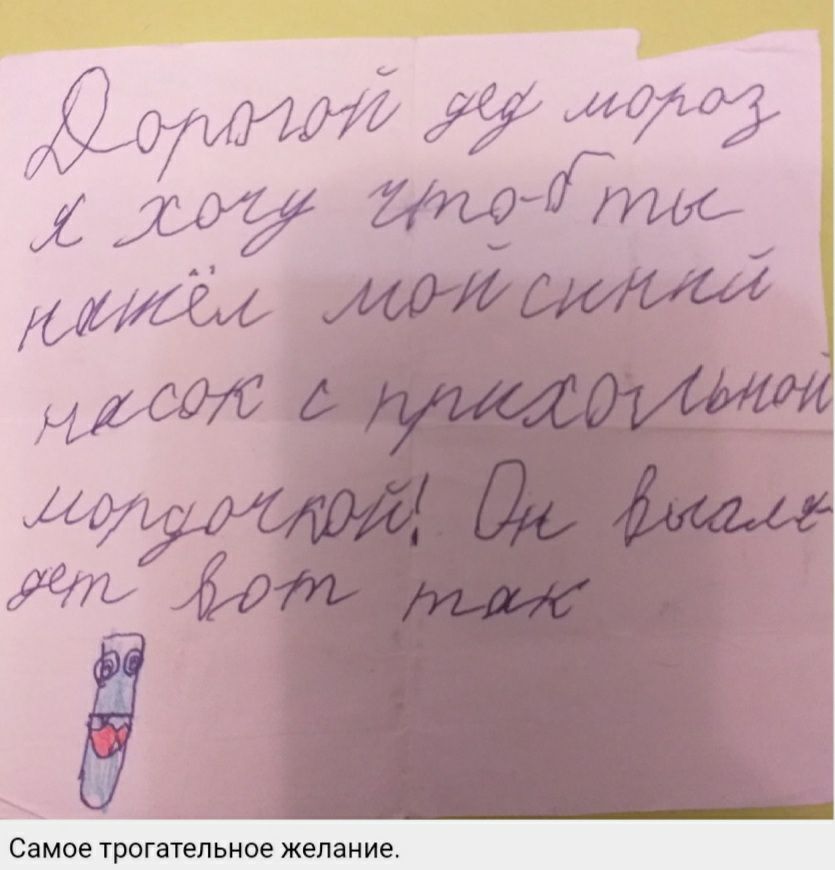 Дорогой дед мороз
я хочу что-б ты
нашёл мой синий
насок с прихольной
мордочкой! Он выгля
дет вот так
Самое трогательное желание.